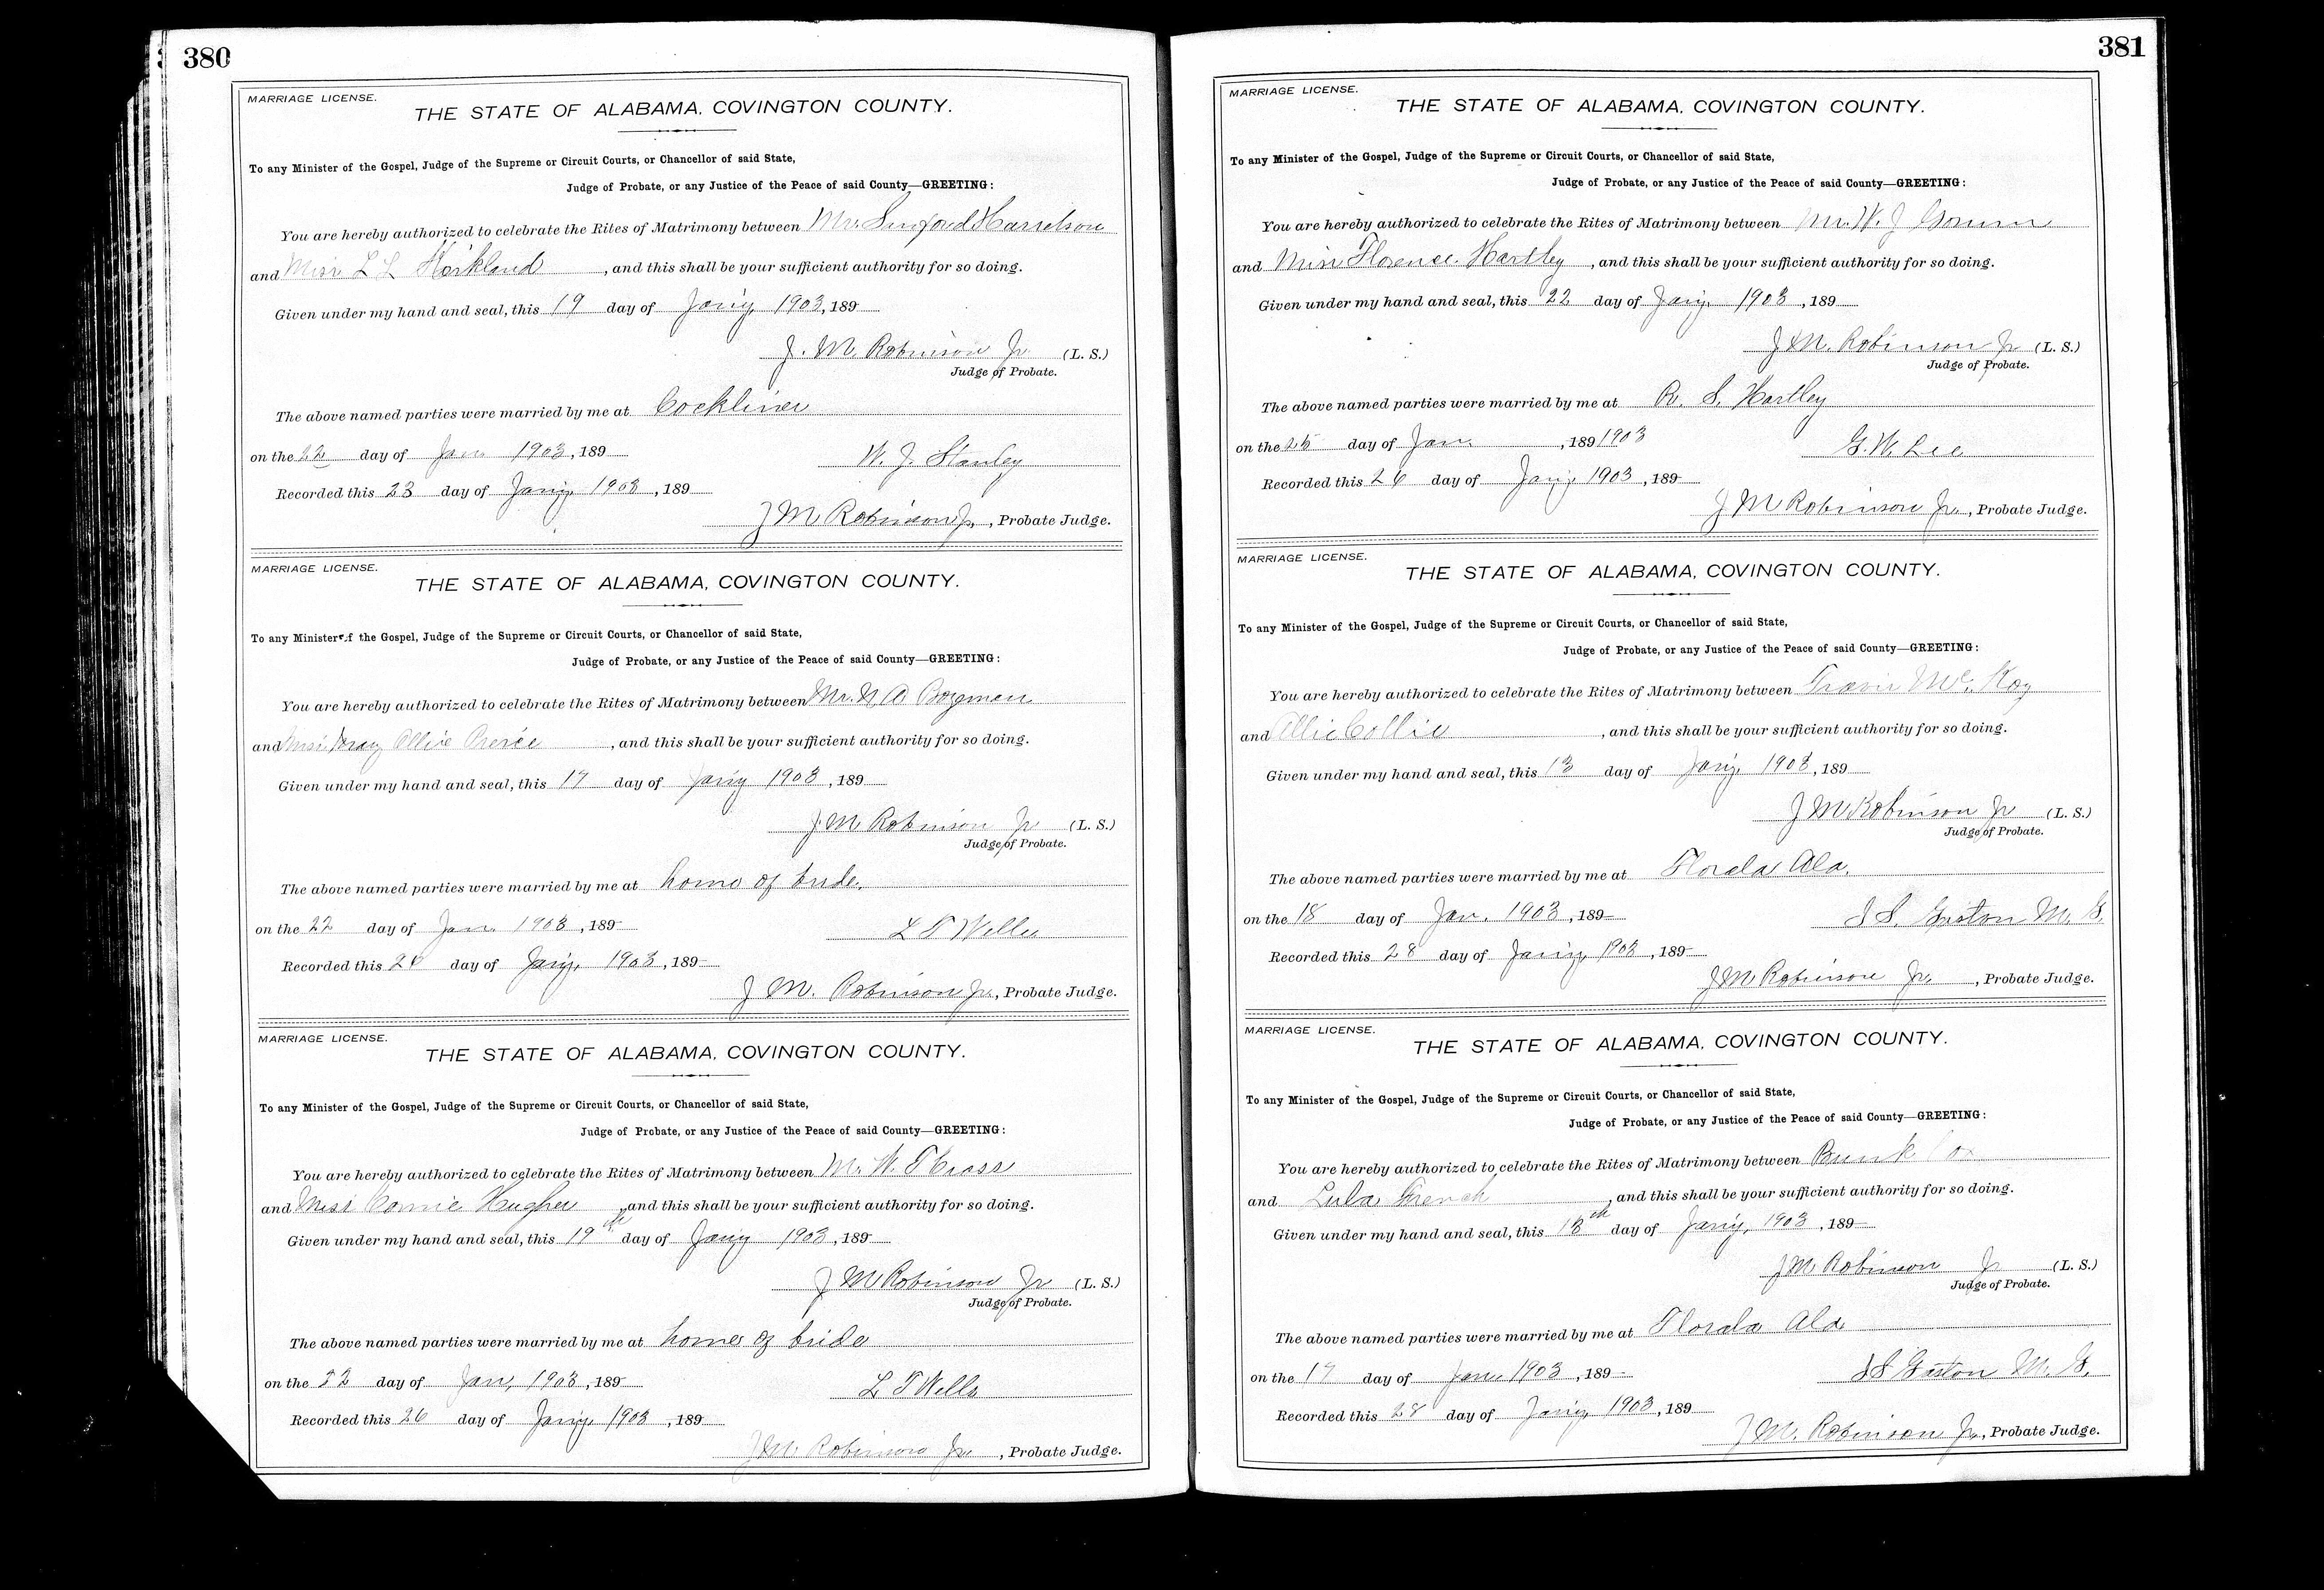 380
MARRIAGE LICENSE.
THE STATE OF ALABAMA, COVINGTON COUNTY.
To any Minister of the Gospel, Judge of the Supreme or Circuit Courts, or Chancellor of said State,
Judge of Probate, or any Justice of the Peace of said County—GREETING:
You are hereby authorized to celebrate the Rites of Matrimony between Mr. Harrelson
and Miss L L Kirkland, and this shall be your sufficient authority for so doing.
Given under my hand and seal, this 19 day of Jany 1903, 189
J. M. Robinson Jr. (L. S.)
Judge of Probate.
The above named parties were married by me at
on the 22 day of Jan 1903, 189
W. J. Stanley
Recorded this 23 day of Jany 1903, 189
J M Robinson Jr., Probate Judge.
MARRIAGE LICENSE.
THE STATE OF ALABAMA, COVINGTON COUNTY.
To any Minister of the Gospel, Judge of the Supreme or Circuit Courts, or Chancellor of said State,
Judge of Probate, or any Justice of the Peace of said County—GREETING:
You are hereby authorized to celebrate the Rites of Matrimony between Mr. Bozeman
and Miss Ollie Pierce, and this shall be your sufficient authority for so doing.
Given under my hand and seal, this 17 day of Jany 1903, 189
J M Robinson Jr (L. S.)
Judge of Probate.
The above named parties were married by me at home of bride.
on the 22 day of Jan 1903, 189
L T Wells
Recorded this day of Jany, 1903, 189
J M. Robinson Jr., Probate Judge.
MARRIAGE LICENSE.
THE STATE OF ALABAMA, COVINGTON COUNTY.
To any Minister of the Gospel, Judge of the Supreme or Circuit Courts, or Chancellor of said State,
Judge of Probate, or any Justice of the Peace of said County—GREETING:
You are hereby authorized to celebrate the Rites of Matrimony between Mr. W. T
and Miss Hughes, and this shall be your sufficient authority for so doing.
Given under my hand and seal, this 19th day of Jany 1903, 189
J M Robinson Jr (L. S.)
Judge of Probate.
The above named parties were married by me at home of bride
on the 22 day of Jan, 1903, 189
L T Wells
Recorded this 26 day of Jany, 1903, 189
J M. Robinson Jr., Probate Judge.
381
MARRIAGE LICENSE.
THE STATE OF ALABAMA, COVINGTON COUNTY.
To any Minister of the Gospel, Judge of the Supreme or Circuit Courts, or Chancellor of said State,
Judge of Probate, or any Justice of the Peace of said County—GREETING:
You are hereby authorized to celebrate the Rites of Matrimony between Mr. W. J
and Miss Florence Hartley, and this shall be your sufficient authority for so doing.
Given under my hand and seal, this 22 day of Jany, 1903, 189
J M. Robinson Jr (L. S.)
Judge of Probate.
The above named parties were married by me at R. S. Hartley
on the 25 day of Jan, 189 1903
G. W. Lee
Recorded this 26 day of Jany 1903, 189
J M Robinson Jr., Probate Judge.
MARRIAGE LICENSE.
THE STATE OF ALABAMA, COVINGTON COUNTY.
To any Minister of the Gospel, Judge of the Supreme or Circuit Courts, or Chancellor of said State,
Judge of Probate, or any Justice of the Peace of said County—GREETING:
You are hereby authorized to celebrate the Rites of Matrimony between Travis McKoy
and Allie Collie, and this shall be your sufficient authority for so doing.
Given under my hand and seal, this 13 day of Jany, 1903, 189
J M Robinson Jr (L. S.)
Judge of Probate.
The above named parties were married by me at Florala Ala.
on the 18 day of Jan. 1903, 189
Gaston M. G.
Recorded this 28 day of Jany, 1903, 189
J M Robinson Jr., Probate Judge.
MARRIAGE LICENSE.
THE STATE OF ALABAMA, COVINGTON COUNTY.
To any Minister of the Gospel, Judge of the Supreme or Circuit Courts, or Chancellor of said State,
Judge of Probate, or any Justice of the Peace of said County—GREETING:
You are hereby authorized to celebrate the Rites of Matrimony between Bunk Cox
and Lula French, and this shall be your sufficient authority for so doing.
Given under my hand and seal, this 13th day of Jany, 1903, 189
J M Robinson Jr (L. S.)
Judge of Probate.
The above named parties were married by me at Florala Ala
on the 17 day of Jan 1903, 189
Gaston M. G.
Recorded this 28 day of Jany, 1903, 189
J M. Robinson Jr., Probate Judge.